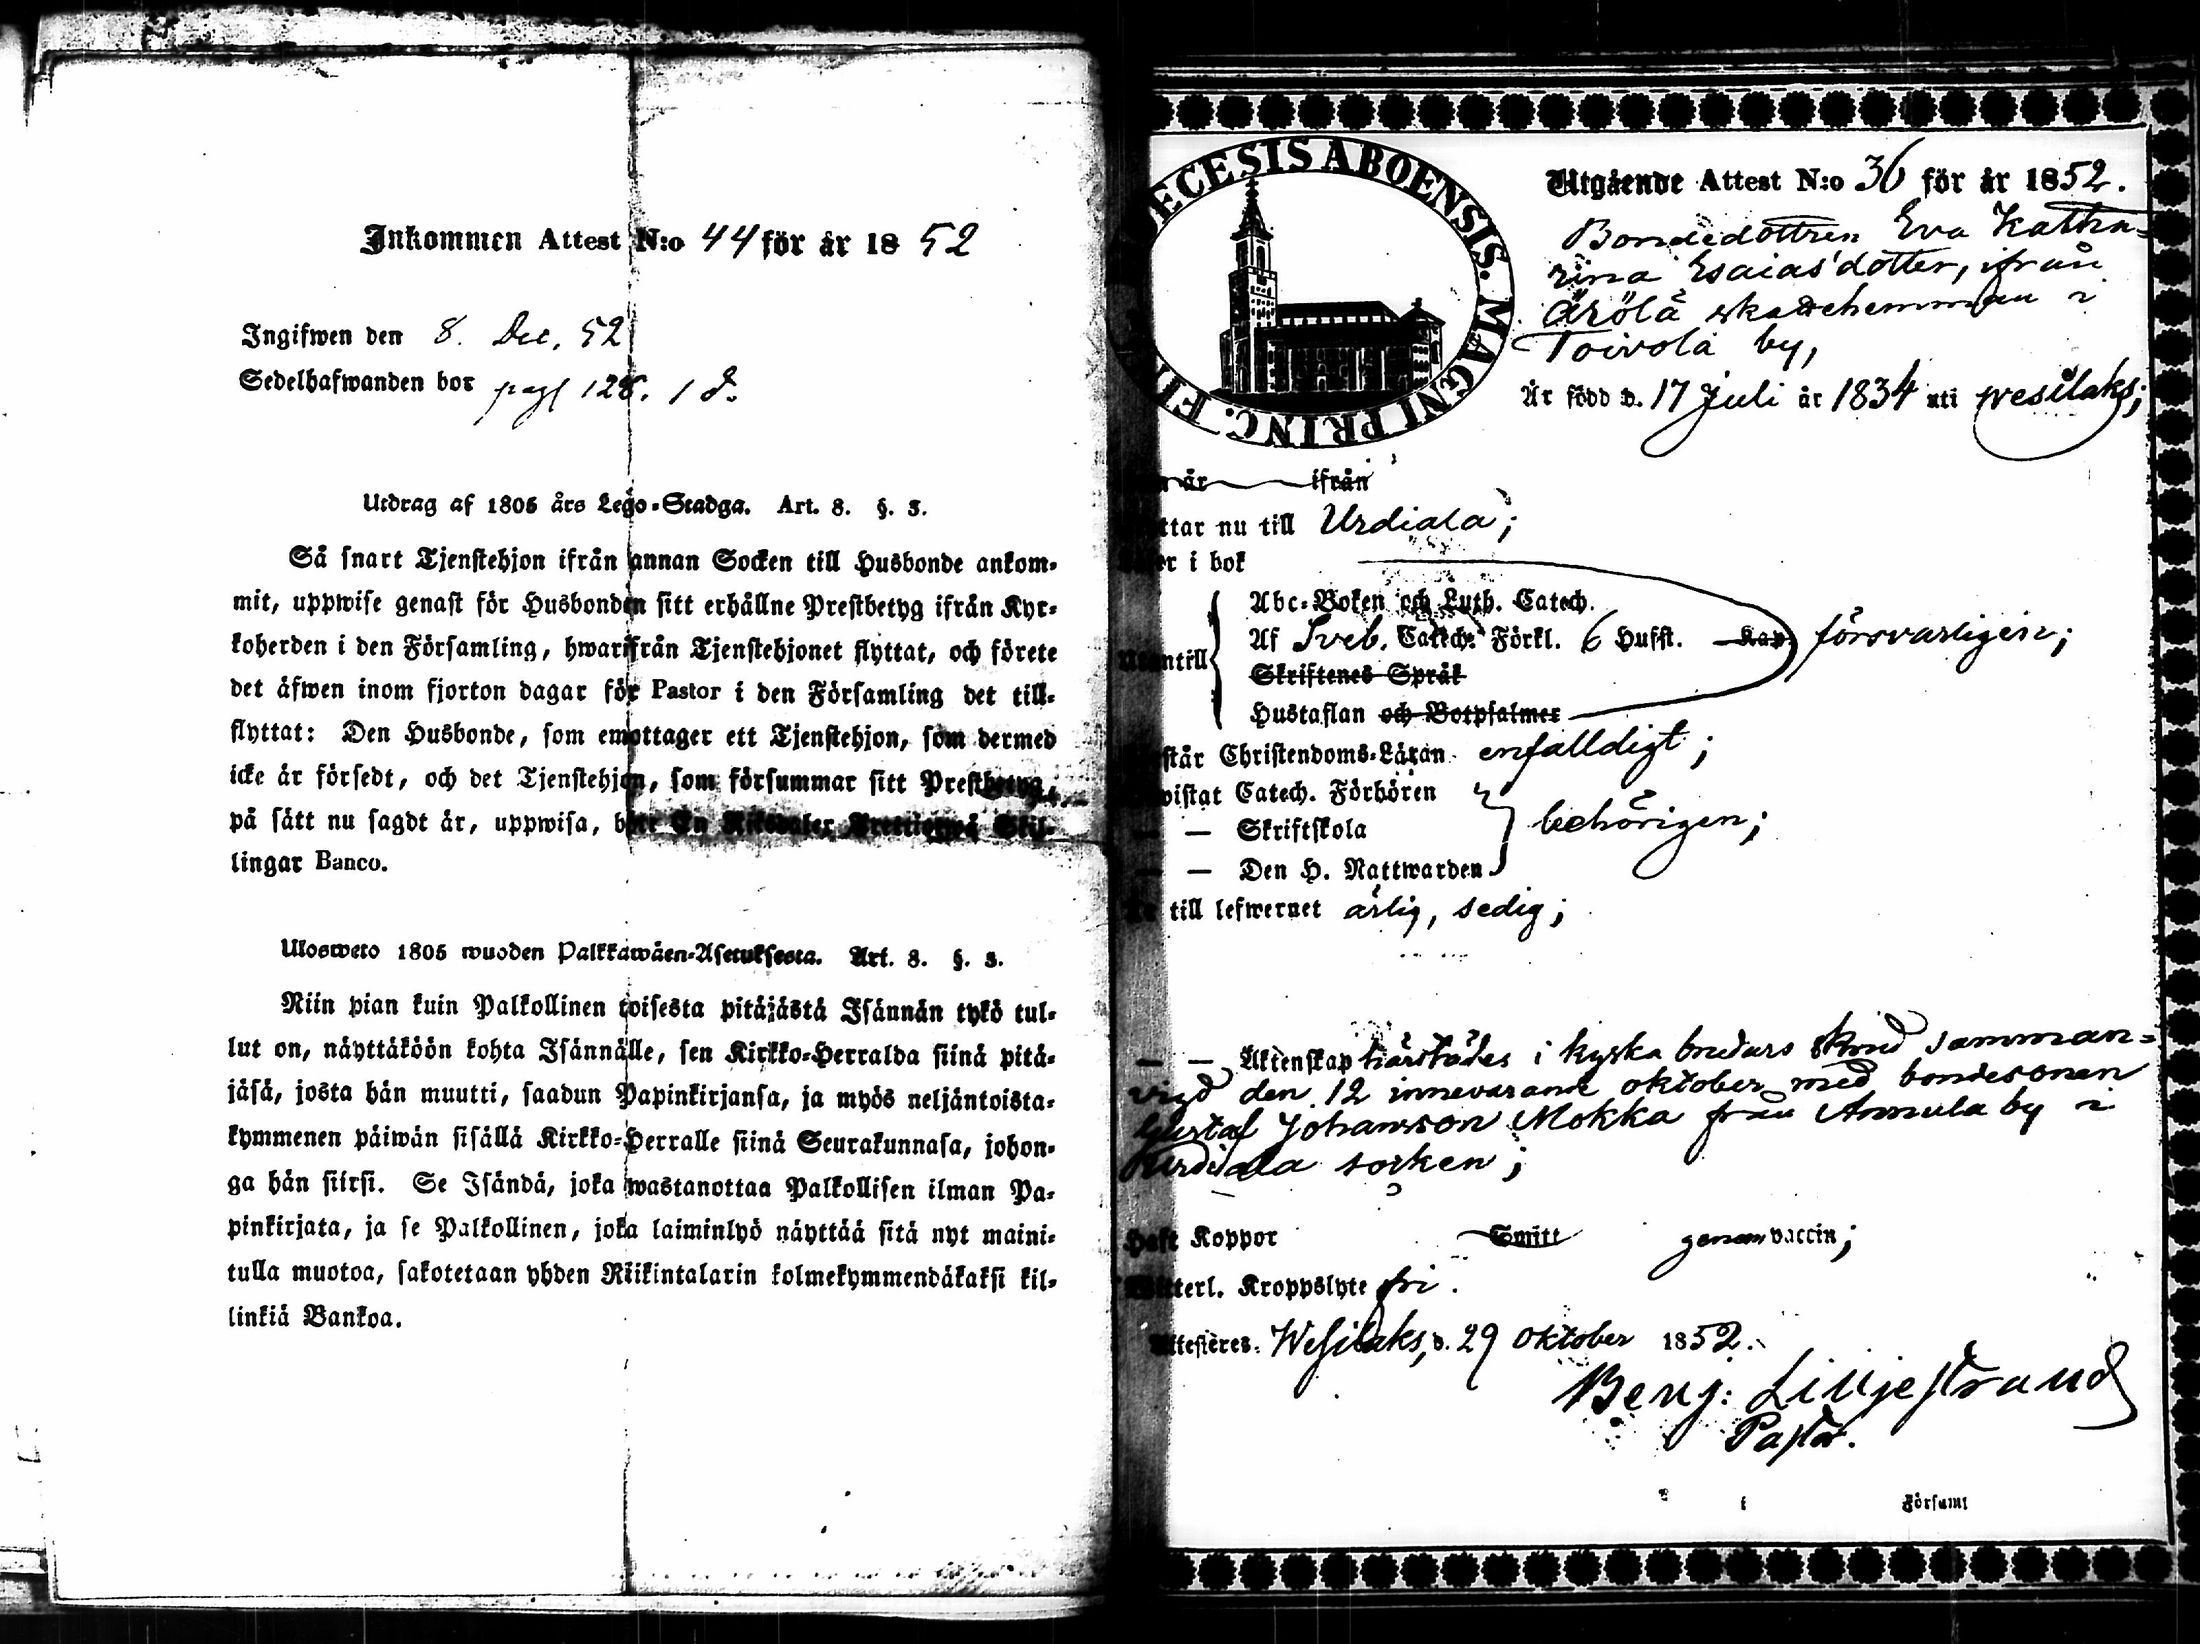 Inkommen Attest N:o 44 för år 18 52
Ingifwen den 8. Dec. 52
Sedelhafwanden bor pag 128. 1 d.
Utdrag af 1805 års Lego-Stadga. Art. 8. §. 3.
Så snart Tjenstehjon ifrån annan Socken till Husbonde ankom-
mit, uppwise genast för Husbonden sitt erhållne Prestbetyg ifrån Kyr-
koherden i den Församling, hwarifrån Tjenstehjonet flyttat, och förete
det äfwen inom fjorton dagar för Pastor i den Församling det till-
flyttat: Den Husbonde, som emottager ett Tjenstehjon, som dermed
icke är försedt, och det Tjenstehjon, som försummar sitt Prestbetyg,
på sätt nu sagdt är, uppwisa, böte En Riksdaler Trettiotwå Skil-
lingar Banco.
Ulosweto 1805 wuoden Palkkawäen-Asetuksesta. Art. 8. §. 3.
Niin pian kuin Palkollinen toisesta pitäjästä Isännän tykö tul-
lut on, näyttäköön kohta Isännälle, sen Kirkko-Herralda siinä pitä-
jäsä, josta hän muutti, saadun Papinkirjansa, ja myös neljäntoista-
kymmenen päiwän sisällä Kirkko-Herralle siinä Seurakunnasa, johon-
ga hän siirsi. Se Isändä, joka wastanottaa Palkollisen ilman Pa-
pinkirjata, ja se Palkollinen, joka laiminlyö näyttää sitä nyt maini-
tulla muotoa, sakotetaan yhden Riikintalarin kolmekymmendäkaksi kil-
linkiä Bankoa.
ECESIS ABOENSIS. MAGNI PRINC. FI
Utgående Attest N:o 36 för år 1852.
Bondedottren Eva Katha-
rina Esaias'dotter, ifrån
Ärölä skattehemman i
Toivola by,
Är född d. 17 Juli år 1834 uti Wesilaks;
är ifrån
ttar nu till Urdiala;
er i bok
Abc-Boken och Luth. Catech.
Af Sveb. Catech. Förkl. 6 Hufst. Kap. försvarligen;
Utantill
Skriftenes Språk
Hustaflan och Botpsalmer
står Christendoms-Läran enfalldigt;
wistat Catech. Förhören
— — Skriftskola behörigen;
— — Den H. Nattwarden
till lefwernet ärlig, sedig;
— — Äktenskap härstädes i kyska brudars stånd samman-
vigd den 12 innevarande oktober med bondesonen
Gustaf Johansson Mokka från Annula by i
Urdiala socken;
Haft Koppor Smitt genom vaccin;
Witterl. Kroppslyte fri.
Attesteres. Wesilaks, d. 29 oktober 1852.
Benj: Liljestrand
Pastor.
i Församl